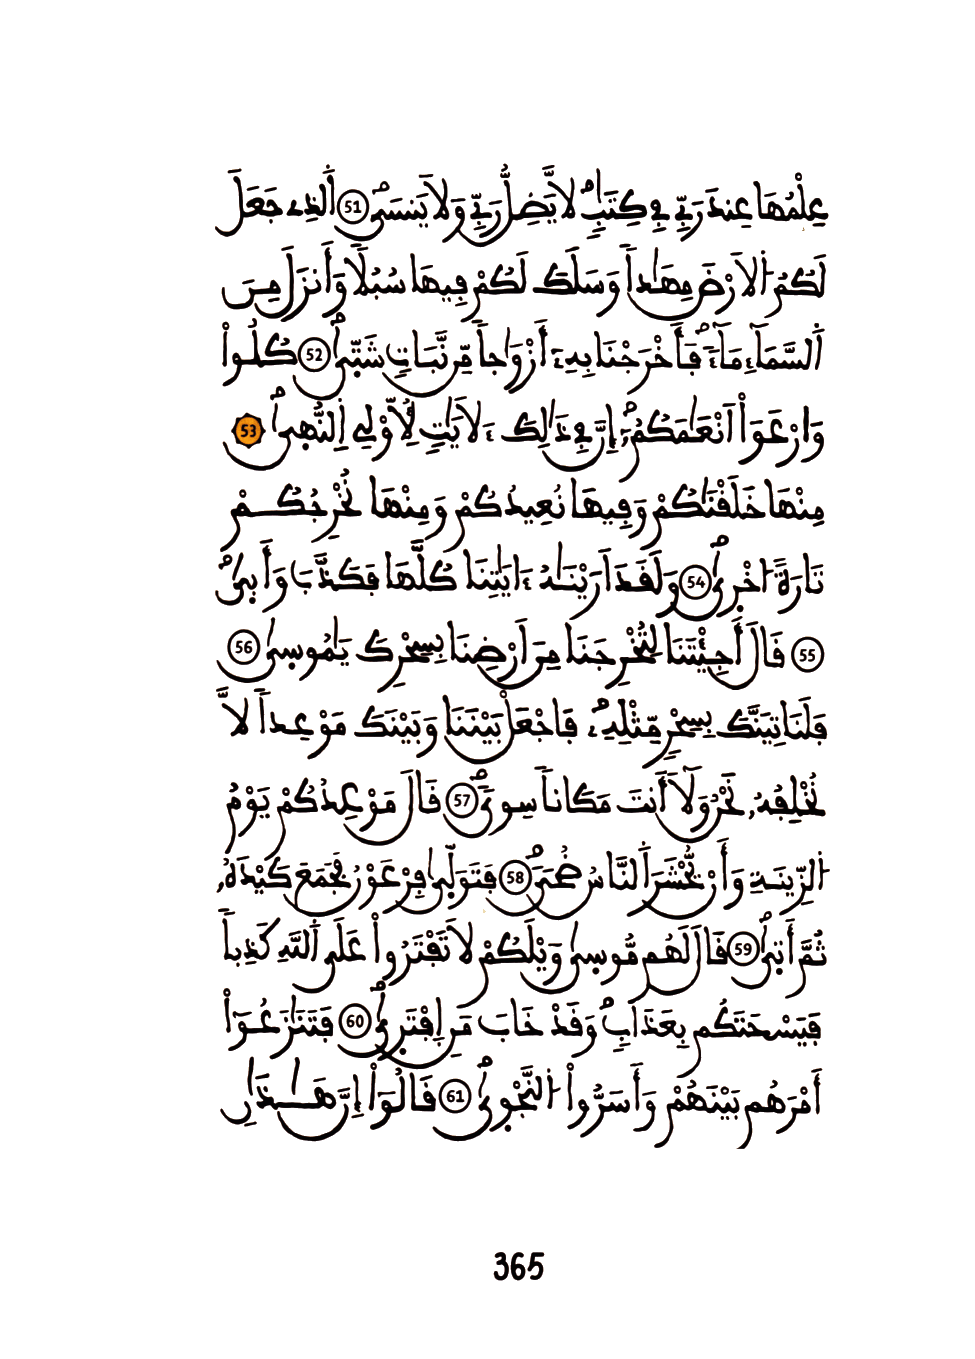 عِلْمُهَا عِندَ رَبِّي فِي كِتَٰبٍ لَّا يَضِلُّ رَبِّي وَلَا يَنسَى 51 اَ۬لذِے جَعَلَ
لَكُمُ اُ۬لَارْضَ مِهَٰداٗ وَسَلَكَ لَكُمْ فِيهَا سُبُلاٗ وَأَنزَلَ مِنَ
اَ۬لسَّمَآءِ مَآءٗ فَأَخْرَجْنَا بِهِۦٓ أَزْوَٰجاٗ مِّن نَّبَاتٖ شَتّ۪يٰ 52 كُلُواْ
وَارْعَوَاْ اَنْعَٰمَكُمُۥٓ إِنَّ فِي ذَٰلِكَ ءَلَايَٰتٖ لِّأُوْلِي اِ۬لنُّه۪يٰ 53
مِنْهَا خَلَقْنَٰكُمْ وَفِيهَا نُعِيدُكُمْ وَمِنْهَا نُخْرِجُكُمْ
تَارَةً ا۟خْر۪يٰ 54 وَلَقَدَ اَرَيْنَٰهُ ءَايَٰتِنَا كُلَّهَا فَكَذَّبَ وَأَب۪يٰ
55 قَالَ أَجِئْتَنَا لِتُخْرِجَنَا مِنَ اَرْضِنَا بِسِحْرِكَ يَٰمُوس۪يٰ 56
فَلَنَاتِيَنَّكَ بِسِحْرٖ مِّثْلِهِۦ فَاجْعَلْ بَيْنَنَا وَبَيْنَكَ مَوْعِداٗ لَّا
نُخْلِفُهُۥ نَحْنُ وَلَآ أَنتَ مَكَاناٗ سِوىٗ 57 قَالَ مَوْعِدُكُمْ يَوْمُ
اُ۬لزِّينَةِ وَأَنْ يُّحْشَرَ اَ۬لنَّاسُ ضُحىٗ 58 فَتَوَلّ۪يٰ فِرْعَوْنُ فَجَمَعَ كَيْدَهُۥ
ثُمَّ أَت۪يٰ 59 قَالَ لَهُم مُّوس۪يٰ وَيْلَكُمْ لَا تَفْتَرُواْ عَلَي اَ۬للَّهِ كَذِباٗ
فَيَسْحَتَكُم بِعَذَابٖ وَقَدْ خَابَ مَنِ اِ۪فْتَر۪يٰ 60 فَتَنَٰزَعُوٓاْ
أَمْرَهُم بَيْنَهُمْ وَأَسَرُّواْ اُ۬لنَّجْو۪يٰ 61 قَالُوٓاْ إِنَّ هَٰذَٰنِ
365